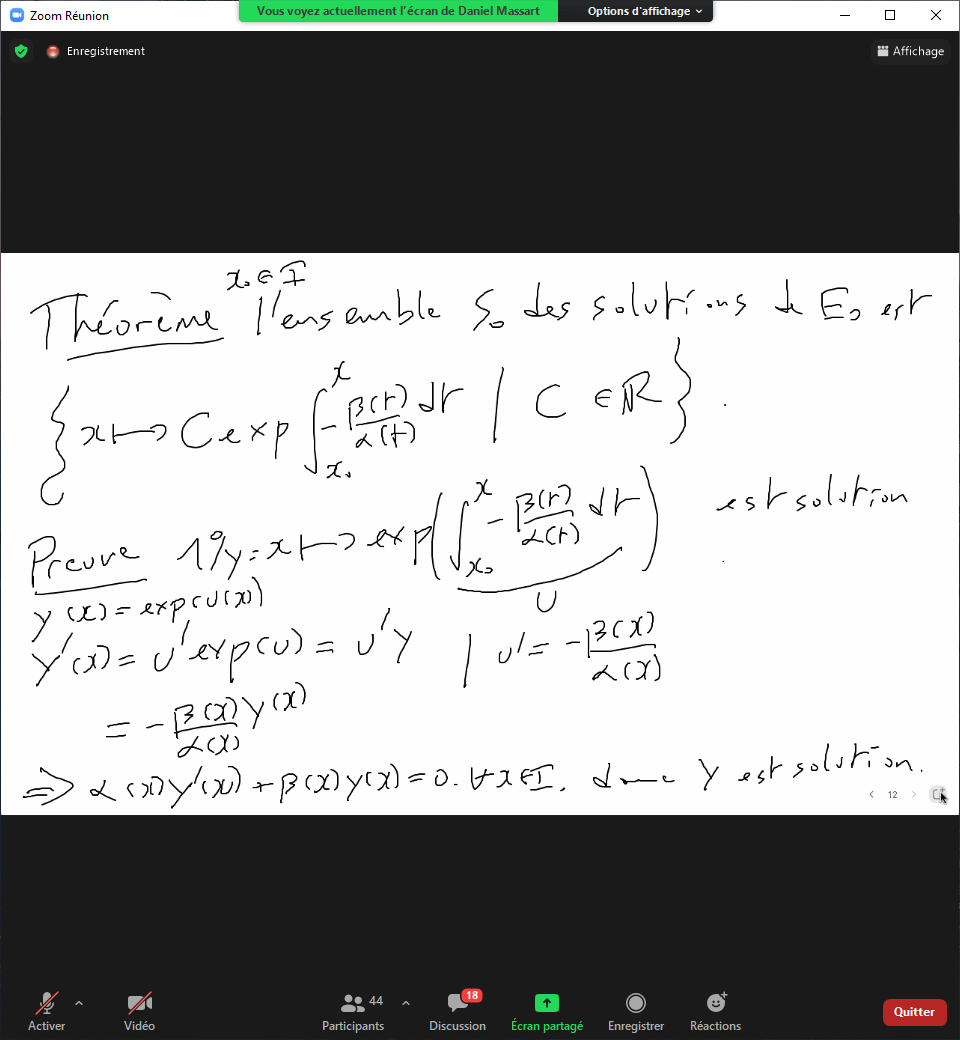 Vous voyez actuellement l'écran de Daniel Massart
Options d'affichage
Zoom Réunion
Enregistrement
Affichage
x₀ ∈ I
Théorème l'ensemble S₀ des solutions de E₀ est
{ x ⟼ C exp ∫_{x₀}^{x} -β(t)/α(t) dt | C ∈ ℝ } .
Preuve 1°/ y = x ⟼ exp( ∫_{x₀}^{x} -β(t)/α(t) dt ) est solution
U
y(x) = exp(U(x))
y'(x) = U' exp(U) = U' y | U' = -β(x)/α(x)
= -β(x)/α(x) y(x)
⇒ α(x) y'(x) + β(x) y(x) = 0. ∀x∈I, donc y est solution.
12
Activer
Vidéo
44
Participants
18
Discussion
Écran partagé
Enregistrer
Réactions
Quitter